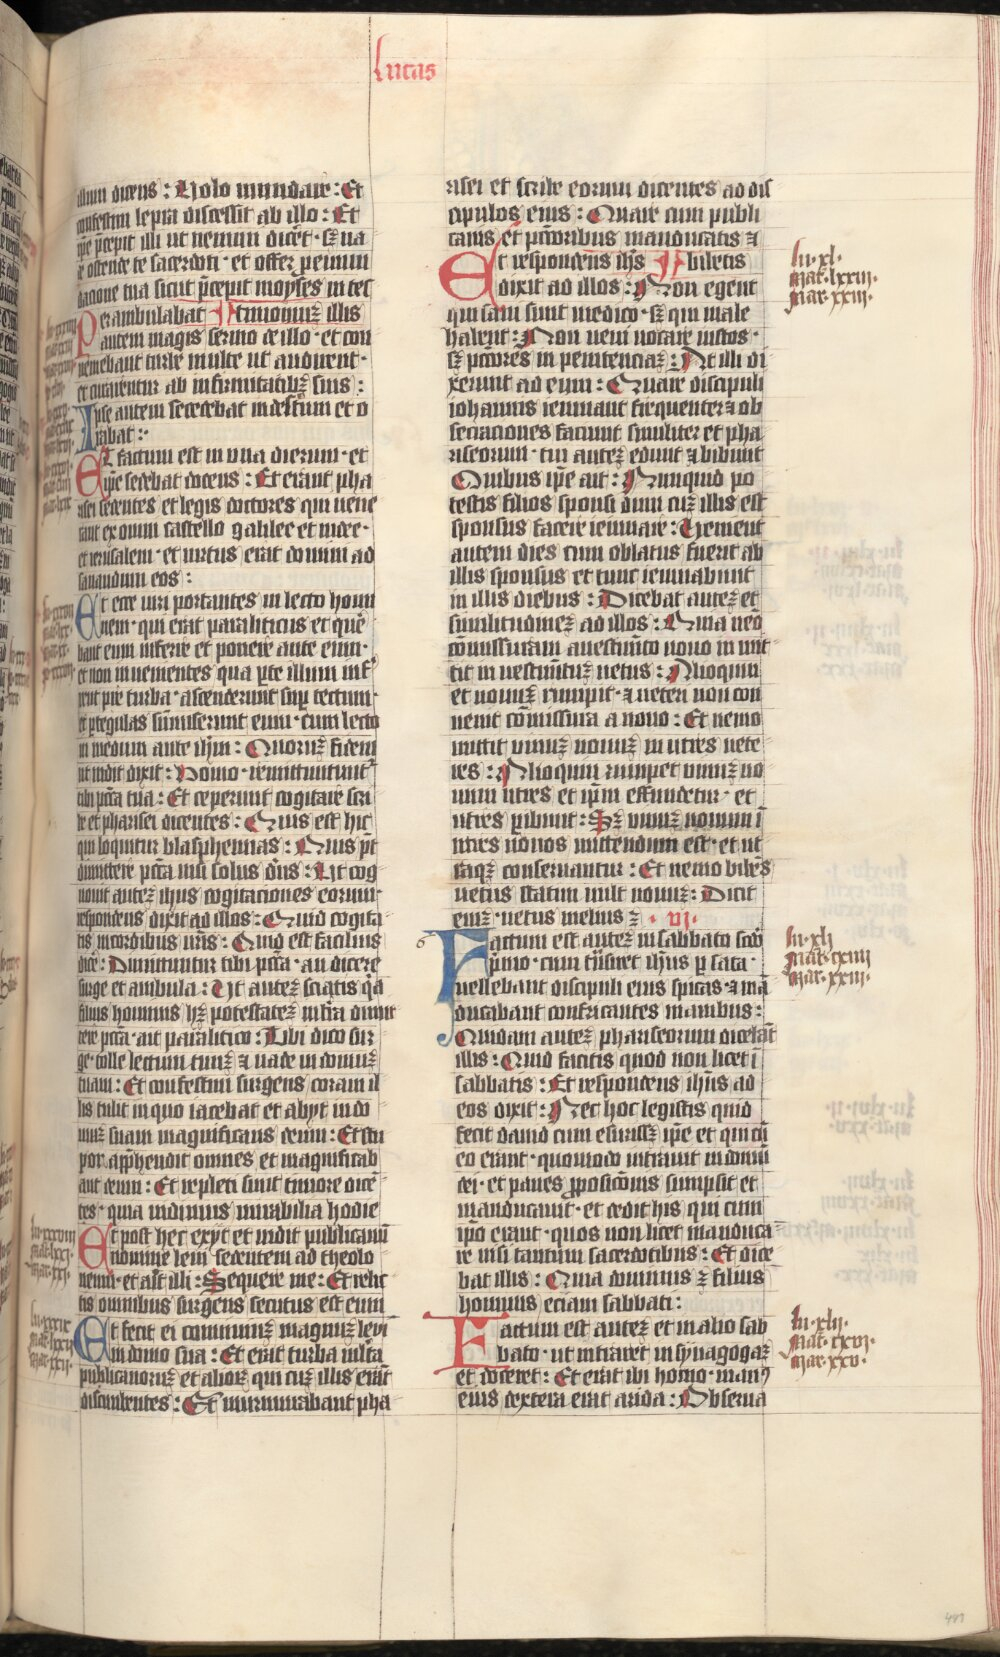 Lucas
illum dicens : Volo mundare : Et
confestim lepra discessit ab illo : Et
ip̄e p̄cepit illi ut nemini dicet · sꝫ va
e ostende te sacerdoti · et offer p̲ emun
dacione tua sicut p̄cepit moyses in tes
Perambulabat timoniuꝫ illis
autem magis sermo de illo · et con
veniebant turbe multe ut audirent ·
et curarentur ab infirmitatibꝫ suis :
Ipse autem secedebat in desertum et o
rabat :·
Et factum est in una dierum · et
ip̄e sedebat docens : Et erant pha
risei sedentes et legis doctores qui vene
rant ex omni castello galilee et iudee ·
et ierusalem · et virtus erat domini ad
sanandum eos :
Et ecce viri portantes in lecto homi
nem · qui erat paraliticus et quere
bant eum inferre et ponere ante eum ·
et non invenientes qua p̲te illum inf
rent pre turba · ascenderunt sup̲ tectum ·
et p̲ tegulas sūmiserunt eum · cum lecto
in medium ante ih̄m : Quoruꝫ fidem
ut vidit dixit : Homo · remittuntur
tibi pctā tua : Et ceperunt cogitare scri
be et pharisei dicentes : Quis est hic
qui loquitur blasphemias : Quis pt̄
dimittere pctā nisi solus d̄us : Ut cog
novit auteꝫ ih̄us cogitaciones eorum ·
respondens dixit ad illos : Quid cogita
tis in cordibus vr̄is : Quid est facilius
dicē : Dimittuntur tibi pctā · an dicere
surge et ambula : Ut auteꝫ sciatis qa
filius hominis hꝫ potestateꝫ in tr̄a dimit
tere pctā · ait paralitico : Tibi dico sur
ge · tolle lectum tuuꝫ ⁊ vade in domuꝫ
tuam : Et confestim surgens coram il
lis tulit in quo iacebat et abijt in do
muꝫ suam magnificans deum : Et stu
por app̄hendit omnes et magnificab
ant deum : Et repleti sunt timore dicē
tes · quia vidimus mirabilia hodie
Et post hec exijt et vidit publicanū
nomine levi sedentem ad theolo
neum · et ait illi : Sequere me : Et relic
tis omnibus surgens secutus est eum
Et fecit ei convivuꝫ magnuꝫ levi
in domo sua : Et erat turba multa
publicanoruꝫ et alioꝝ qui cuꝫ illis erāt
discumbentes : Et murmurabant pha
risei et scribe eorum dicentes ad dis
cipulos eius : Quare cum publi
canis et pctōribus manducatis ⁊
Et respondens ih̄s bibetis
dixit ad illos : Non egent
qui sani sunt medico · sꝫ qui male
habent : Non veni vocare iustos ·
sꝫ pctōres in penitenciaꝫ : At illi di
xerunt ad eum : Quare discipuli
iohannis ieiunant frequenter ⁊ ob
secraciones faciunt similiter et pha
riseorum · tui auteꝫ edunt ⁊ bibunt
Quibus ip̄e ait : Nunquid po
testis filios sponsi dum cuꝫ illis est
sponsus facere ieiunare : Venient
autem dies cum oblatus fuerit ab
illis sponsus et tunc ieiunabunt
in illis diebus : Dicebat auteꝫ et
similitudineꝫ ad illos : Quia nēo
cōmissuram a vestimēto novo in mit
tit in vestimētuꝫ vetus : Alioquin
et novuꝫ rumpit · ⁊ veteri non con
venit cōmissura a novo : Et nemo
mittit vinuꝫ novuꝫ in utres vete
res : Alioquin rumpet vinuꝫ no
vum utres et ip̄m effundetur · et
utres p̲ibunt : Sꝫ vinuꝫ novum ī
utres novos mittendum est · et ut
raqꝫ conservantur : Et nemo bibēs
vetus statim vult novuꝫ : Dicit
enīꝫ · vetus melius ē · vi ·
Factum est auteꝫ in sabbato scdo
p̄imo · cum tn̄siret ih̄us p̲ sata ·
vellebant discipuli eius spicas ⁊ mā
ducabant confricantes manibus :
Quidam auteꝫ phariseorum dicebāt
illis : Quid facitis quod non licet ī
sabbatis : Et respondens ih̄us ad
eos dixit : Nec hoc legistis quid
fecit david cum esurissꝫ ip̄e et qui cū
eo erant · quomodo intravit in domū
dei · et panes p̲posicōnis sumpsit et
manducavit · et dedit his qui cum
ip̄o erant · quos non licet manduca
re nisi tantum sacerdotibus : Et dice
bat illis : Quia dominus ē filius
hominis eciam sabbati :
Factum est auteꝫ et in alio sab
bato · ut intraret in synagogaꝫ
et doceret : Et erat ibi homo · manꝰ
eius dextera erat arida : Observa
lu · xl ·
mat · lxxiii ·
mar · xxiii ·
lu · xli
mat · cxiiii
mar · xxiiii ·
lu · xlii ·
mat · cxvi ·
mar · xxv ·